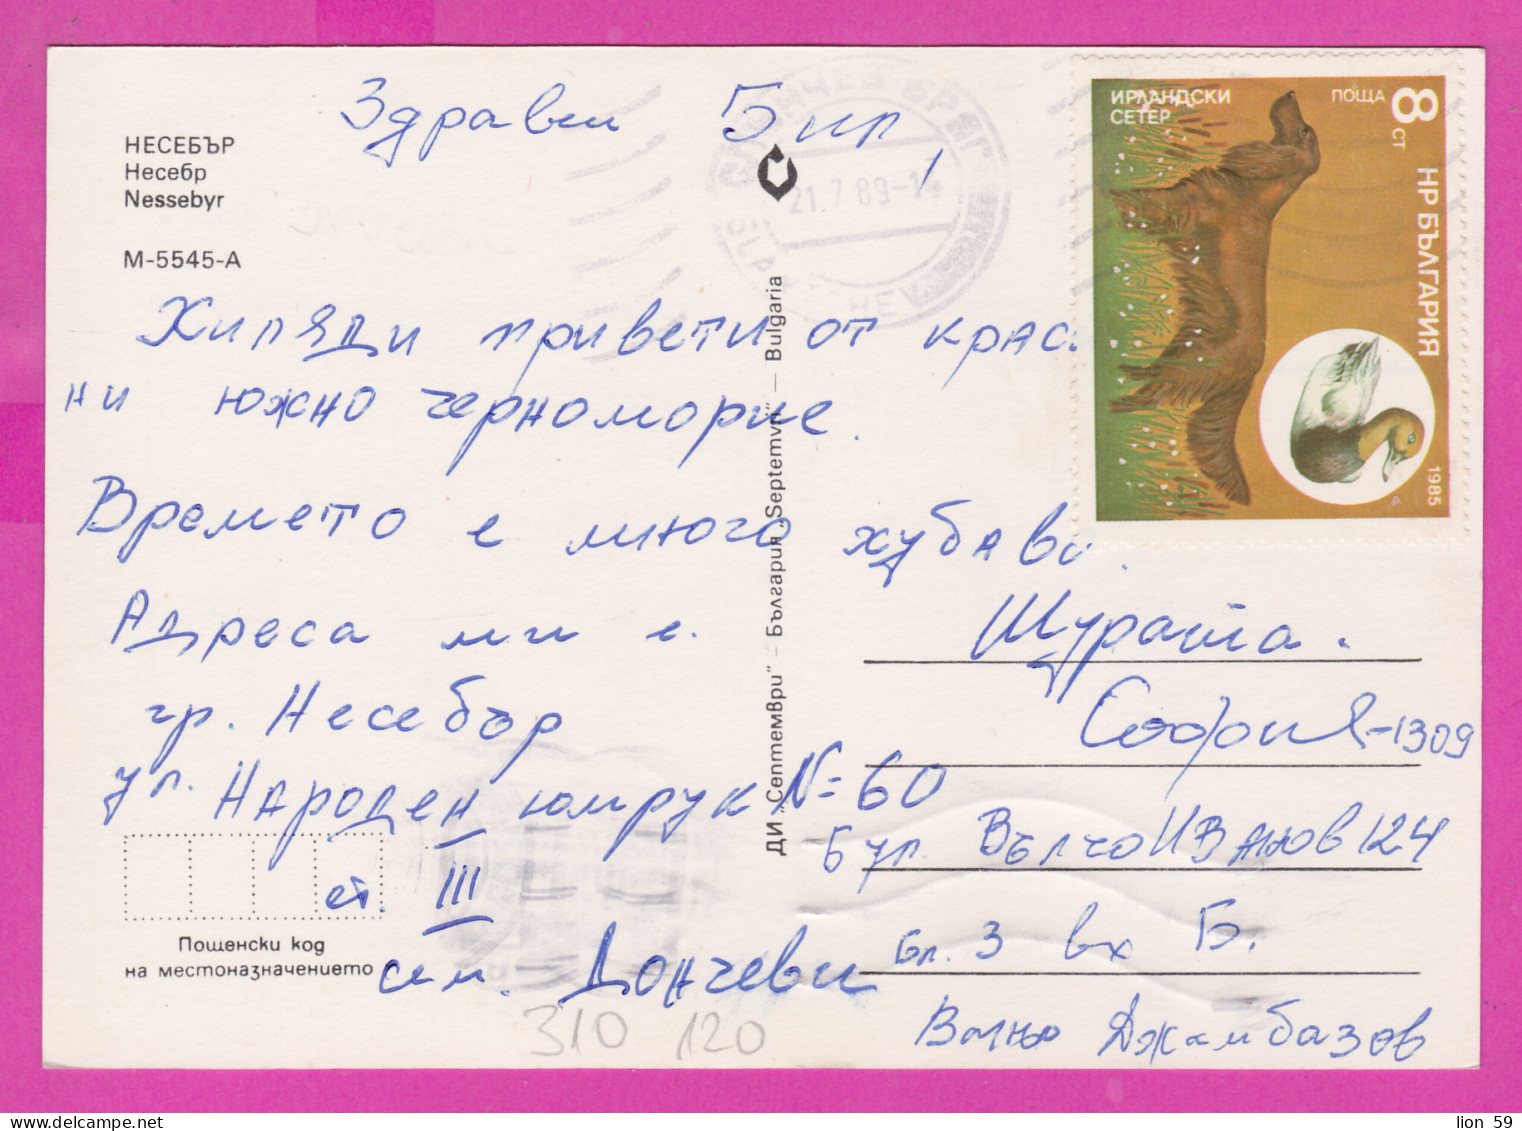 Здравей Бир,
НЕСЕБЪР
Несебр
Nessebyr
М-5545-А
СЛЪНЧЕВ БРЯГ
21.7.89-1
ИРЛАНДСКИ
СЕТЕР
ПОЩА 8 СТ
НР БЪЛГАРИЯ
1985
Хиляди привети от крас
ни южно черноморие.
Времето е много хубаво.
Адреса ми е.
гр. Несебър
ул. Народен юмрук №60
ет. III
сем. Дончеви
Пощенски код
на местоназначението
ДИ „Септември" – България „Septemvri" – Bulgaria
Щурата.
София-1309
Бул. Вълчо Иванов 124
Бл. 3 вх Б.
Ваньо Джамбазов
310 120
lion 59